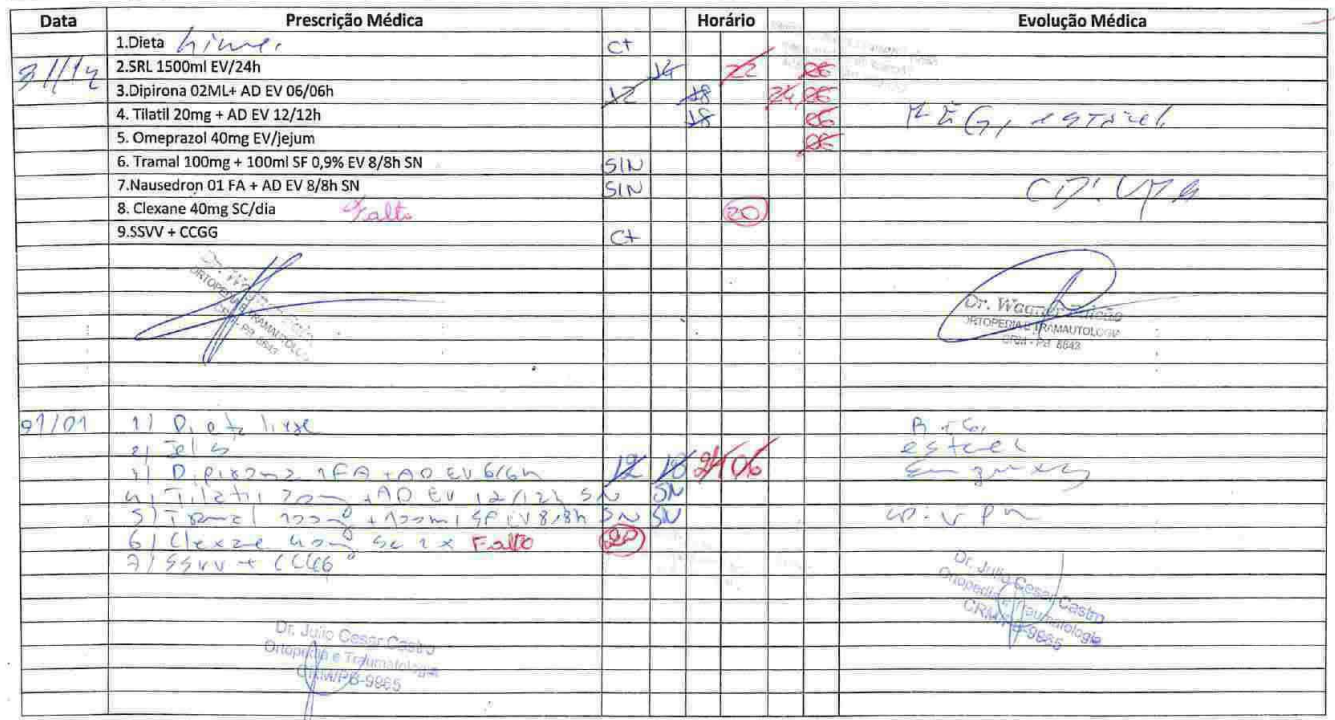 Data Prescrição Médica Horário Evolução Médica
1.Dieta livre. ct
31/12 2.SRL 1500ml EV/24h 14 22 06
3.Dipirona 02ML+ AD EV 06/06h 12 18 24 06
4. Tilatil 20mg + AD EV 12/12h 18 06 REG, estável
5. Omeprazol 40mg EV/jejum 06
6. Tramal 100mg + 100ml SF 0,9% EV 8/8h SN S/N
7.Nausedron 01 FA + AD EV 8/8h SN S/N CD:
8. Clexane 40mg SC/dia Falto 20
9.SSVV + CCGG ct
Dr. Wagner
ORTOPEDIA E TRAMAUTOLOGIA
CRM - PB 8843
Dr. Wagner
ORTOPEDIA E TRAMAUTOLOGIA
CRM - PB 8843
01/01 1) Dieta livre
2)
3) Dipirona 1FA + AD EV 6/6h 12 18 24 06
4) Tilatil 20mg + AD EV 12/12h SN SN
5) Tramal 100mg + 100ml SF EV 8/8h SN SN
6) Clexane 40mg SC 1x Falto 20
7) SSVV + CCGG
estável
Dr. Julio Cesar Castro
Ortopedia e Traumatologia
CRM/PB-9965
Dr. Julio Cesar Castro
Ortopedia e Traumatologia
CRM/PB-9965